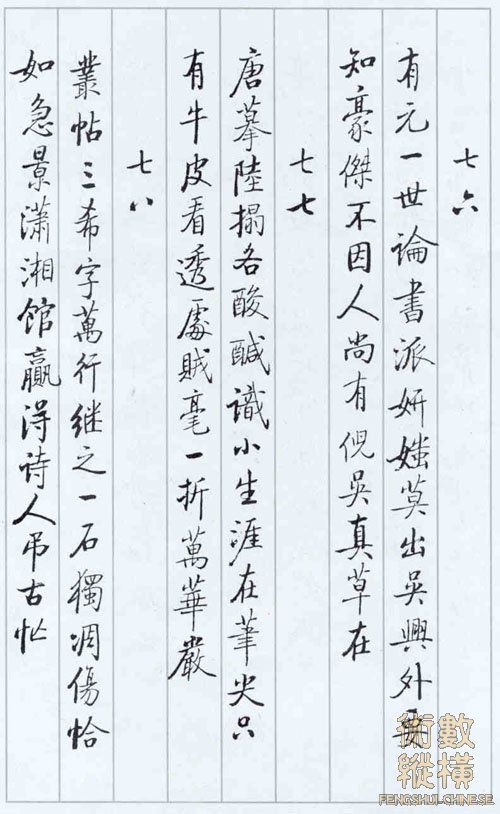 七六
有元一世論書派妍媸莫出吳興外要
知豪傑不因人尚有倪吳真草在
七七
唐摹陸搨各酸醎識小生涯在筆尖只
有牛皮看透處賊毫一折萬華嚴
七八
叢帖三希字萬行继之一石獨凋傷恰
如急景瀟湘館贏得诗人吊古忙
數術
縱橫
FENGSHUI-CHINESE